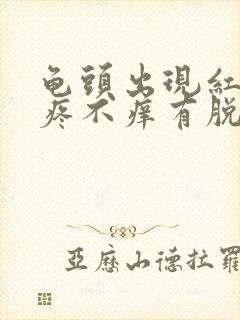 龟頭出現紅
疼不痒有脱
亞歷山德拉羅